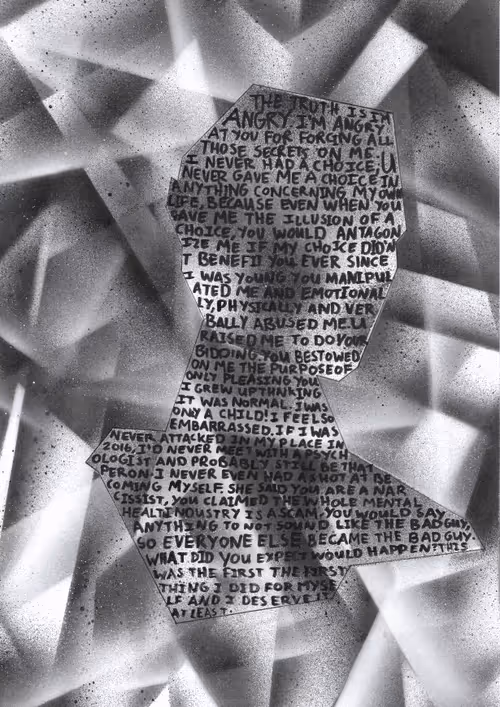 THE TRUTH IS I'M
ANGRY. I'M ANGRY
AT YOU FOR FORCING ALL
THOSE SECRETS ON ME.
I NEVER HAD A CHOICE; U
NEVER GAVE ME A CHOICE IN
ANYTHING CONCERNING MY OWN
LIFE, BECAUSE EVEN WHEN YOU
GAVE ME THE ILLUSION OF A
CHOICE, YOU WOULD ANTAGON
IZE ME IF MY CHOICE DIDN'
T BENEFIT YOU EVER SINCE
I WAS YOUNG YOU MANIPUL
ATED ME AND EMOTIONAL
LY, PHYSICALLY AND VER
BALLY ABUSED ME. U
RAISED ME TO DO YOUR
BIDDING. YOU BESTOWED
ON ME THE PURPOSE OF
ONLY PLEASING YOU
I GREW UP THINKING
IT WAS NORMAL. I WAS
ONLY A CHILD! I FEEL SO
EMBARRASSED. IF I WAS
NEVER ATTACKED IN MY PLACE IN
2016, I'D NEVER MEET WITH A PSYCH
OLOGIST AND PROBABLY STILL BE THAT
PERON. I NEVER EVEN HAD A SHOT AT BE
COMING MYSELF. SHE SAID YOU ARE A NAR
CISSIST, YOU CLAIMED THE WHOLE MENTAL
HEALTH INDUSTRY IS A SCAM, YOU WOULD SAY
ANYTHING TO NOT SOUND LIKE THE BAD GUY,
SO EVERYONE ELSE BECAME THE BAD GUY.
WHAT DID YOU EXPECT WOULD HAPPEN? THIS
WAS THE FIRST THE FIRST
THING I DID FOR MYSE
LF AND I DESERVE IT
AT LEAST.